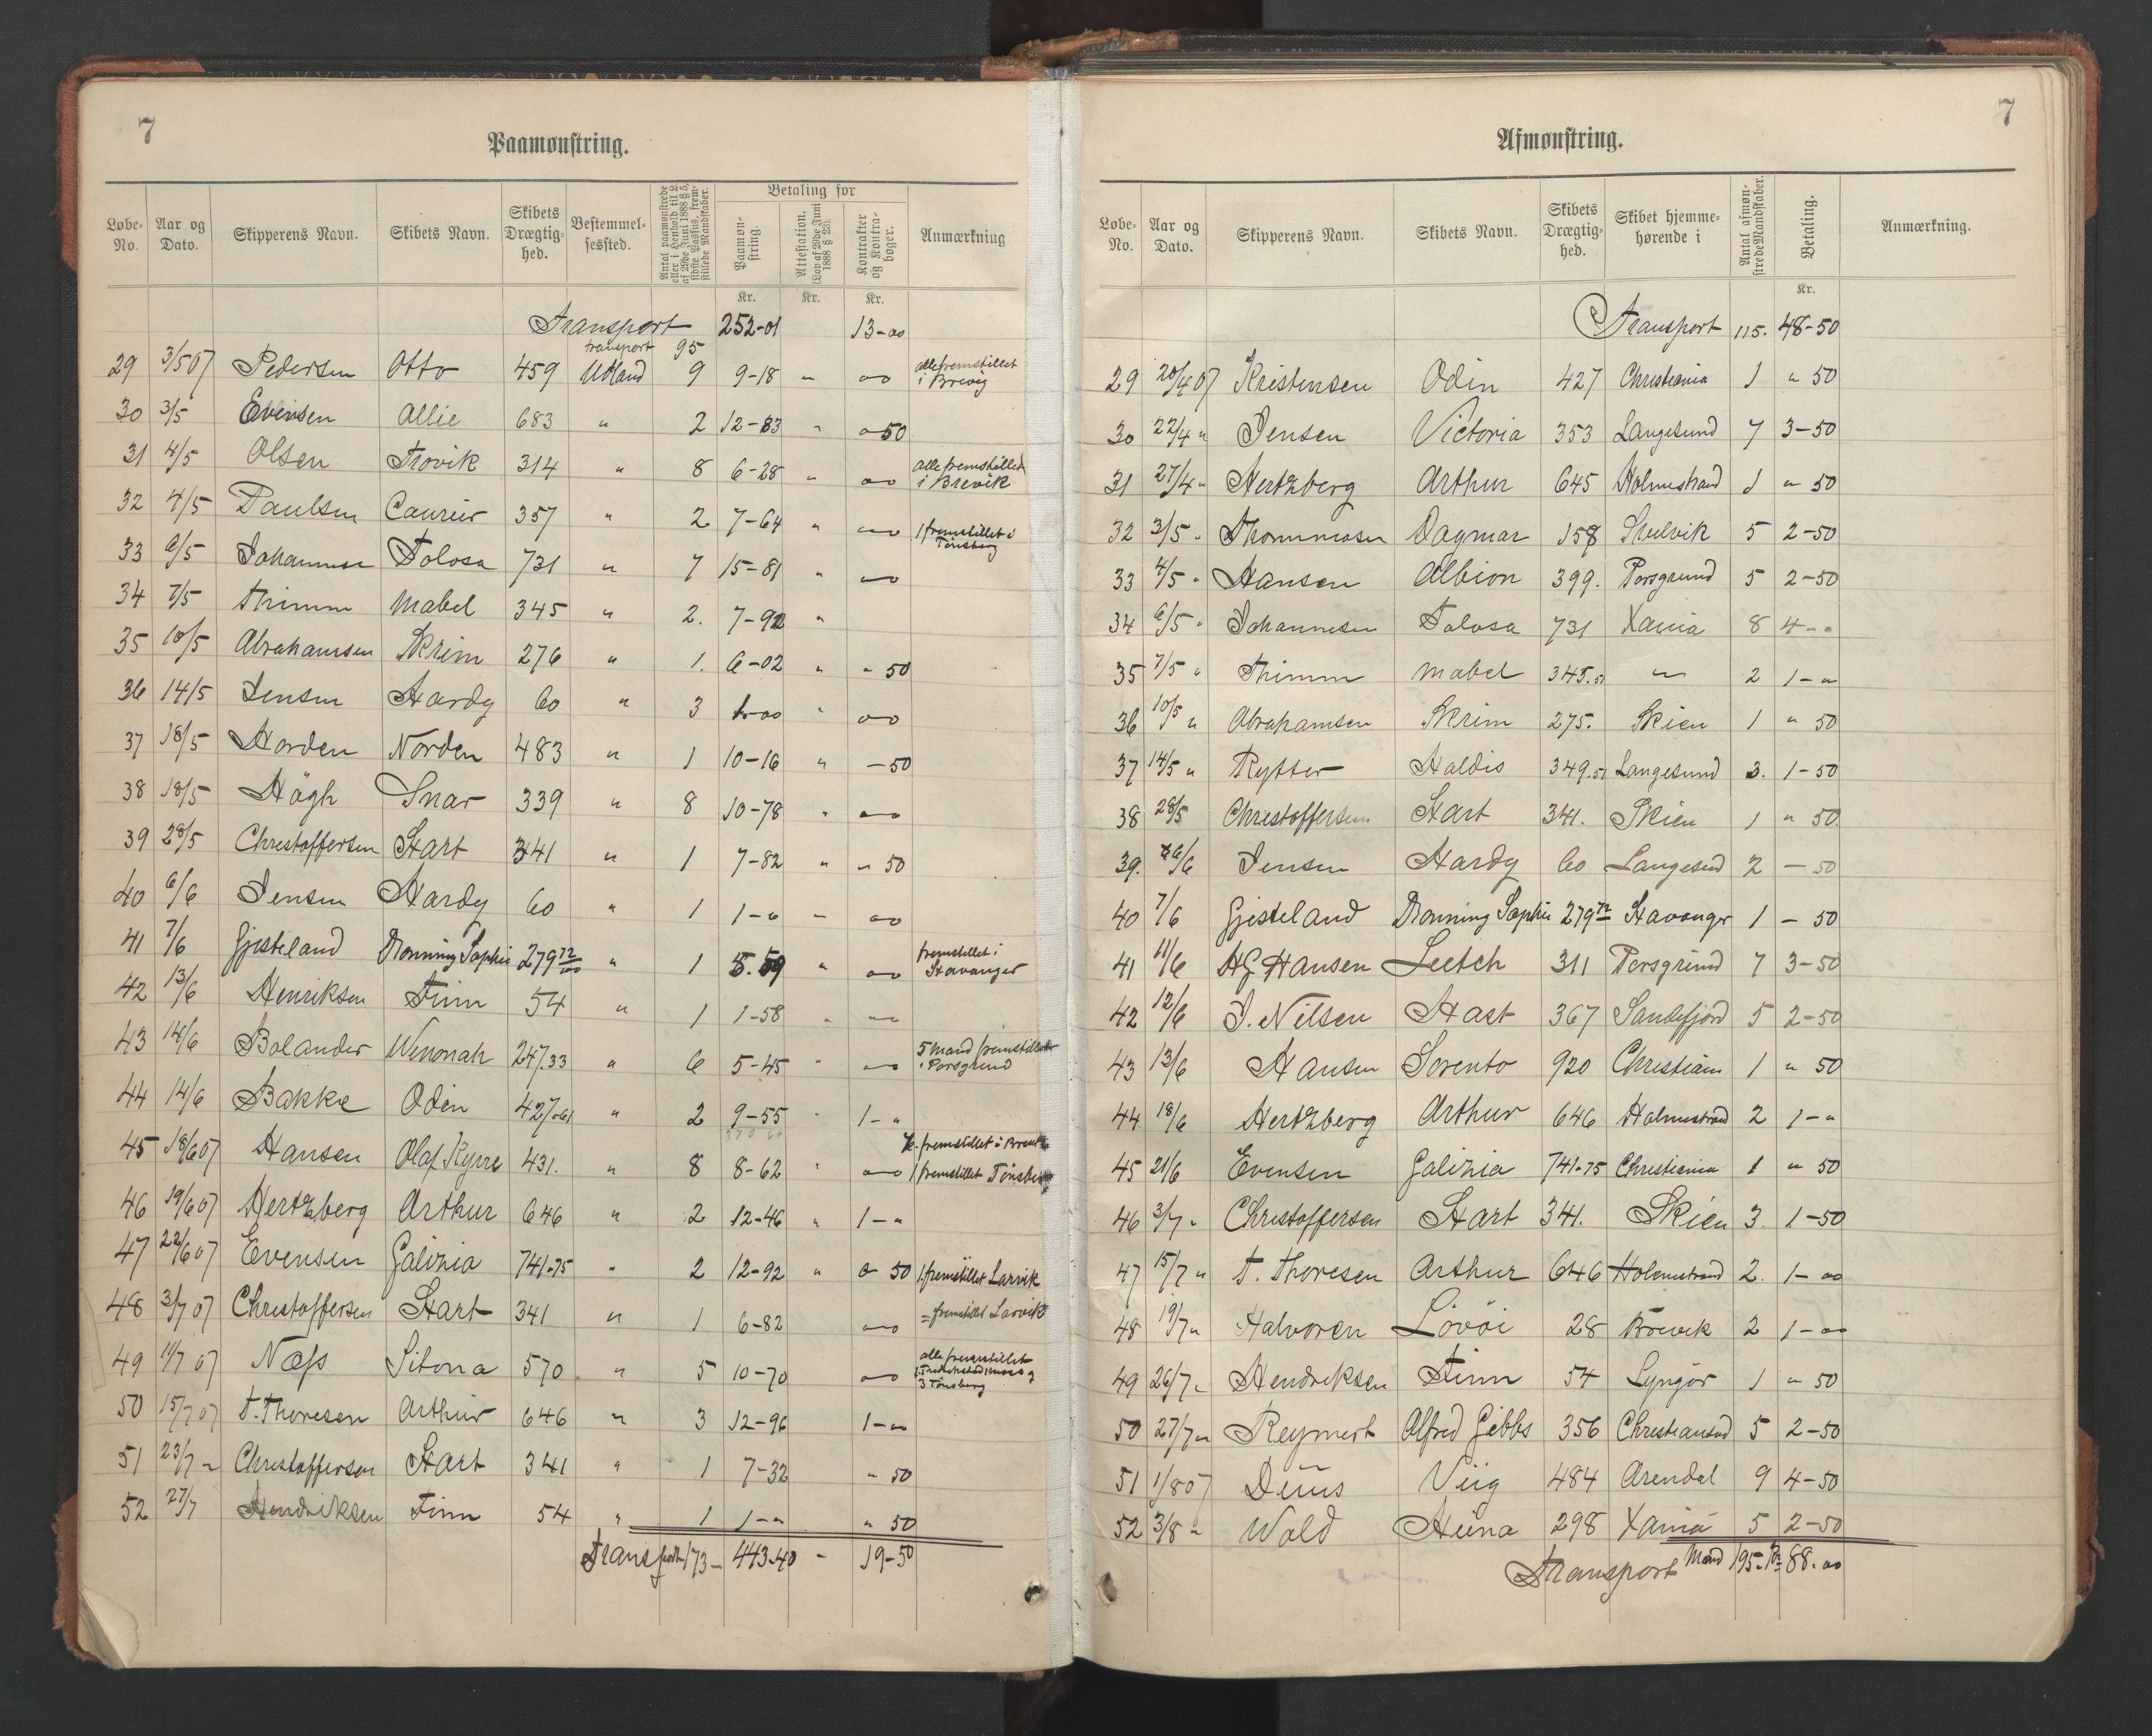 7
Paamønstring.
Løbe-No. Aar og Dato. Skipperens Navn. Skibets Navn. Skibets Drægtig-hed. Bestemmel-sessted. Antal paamønstrede eller i Henhold til L. af 29de Juni 1888 § 5, sidste Passus, frem-stillede Mandskaber. Betaling for Paamøn-string. Attestation. (Lov af 29de Juni 1888 § 23). Kontrakter og Kontra-bøger. Anmærkning
Kr. Kr. Kr.
Transport 252-01 13-00
transport 95
29 3/5 07 Pedersen Otto 459 Udland 9 9-18 " oo alle fremstillet i Brevig
30 3/5 Evensen Allie 683 " 2 12-83 " o-50
31 4/5 Olsen Trovik 314 " 8 6-28 " oo alle fremstilled i Brevik
32 4/5 Paulsen Caurier 357 " 2 7-64 " oo 1 fremstillet i Tönsberg
33 6/5 Johannesen Tolosa 731 " 7 15-81 " oo
34 7/5 Thimm Mabel 345 " 2. 7-92 "
35 10/5 Abrahamsen Skrim 276 " 1. 6-02 " " 50
36 14/5 Jensen Hardy 60 " 3 1-oo " oo
37 18/5 Horden Norden 483 " 1 10-16 " -50
38 18/5 Högh Snar 339 " 8 10-78 " oo
39 28/5 Christoffersen Start 341 " 1 7-82 " " 50
40 6/6 Jensen Hardy 60 " 1 1-o " oo
41 7/6 Gjesteland Dronning Sophie 279 72/100 " 1 5.59 " oo fremstillet i Stavanger
42 13/6 Henriksen Finn 54 " 1 1-58 " oo
43 14/6 Bolander Wenonah 247.33 " 6 5-45 " oo 5 mand fremstillet i Porsgrund
44 14/6 Bakke Odin 427.61 " 2 9-55 " 1-"
45 18/6 07 Hansen Olaf Kyrre 431. " 8 8-62 " oo fremstillet i Brevik 1 fremstillet Tönsberg
46 19/6 07 Hertzberg Arthur 646 " 2 12-46 " 1-"
47 22/6 07 Evensen Galizia 741.75 " 2 12-92 " o 50 1 fremstillet Larvik
48 3/7 07 Christoffersen Start 341 " 1 6-82 oo = fremstillet Larvik
49 11/7 07 Næss Sitona 570 " 5 10-70 oo alle fremstillet 3 Tönsberg
50 15/7 07 T. Thoresen Arthur 646 " 3 12-96 1-"
51 23/7 " Christoffersen Start 341 " 1 7-32 " 50
52 27/7 Hendriksen Finn 54 " 1 1-" " 50
Transport 173- 443-40 - 19-50
7
Afmønstring.
Løbe-No. Aar og Dato. Skipperens Navn. Skibets Navn. Skibets Drægtig-hed. Skibet hjemme-hørende i Antal afmøn-strede Mandskaber. Betaling. Anmærkning.
Kr.
Transport 115. 48-50
29 20/4 07 Kristensen Odin 427 Christiania 1 " 50
30 22/4 " Jensen Victoria 353 Langesund 7 3-50
31 27/4 " Hertzberg Arthur 645 Holmestrand 1 " 50
32 3/5 " Thommasen Dagmar 158 Svelvik 5 2-50
33 4/5 " Hansen Albion 399. Porsgrund 5 2-50
34 6/5 " Johannesen Tolosa 731 Xania 8 4-"
35 7/5 " Thimm Mabel 345.51 " 2 1-"
36 10/5 " Abrahamsen Skrim 275. Skien 1 " 50
37 14/5 " Rytter Haldis 349.51 Langesund 3. 1-50
38 28/5 Christoffersen Start 341. Skien 1 " 50
39. 6/6 Jensen Hardy 60 Langesund 2 - 50
40 7/6 Gjesteland Dronning Sophie 279 72 Stavanger 1 - 50
41 11/6 H G Hansen Leetch 311 Porsgrund 7 3-50
42 12/6 J. Nilsen Hast 367 Sandefjord 5 2-50
43 13/6 Hansen Sorento 920 Christiania 1 " 50
44 18/6 Hertzberg Arthur 646 Holmestrand 2 1-"
45 21/6 Evensen Galizia 741.75 Christiania 1 " 50
46 3/7 " Christoffersen Start 341. Skien 3. 1-50
47 15/7 " T. Thoresen Arthur 646 Holmestrand 2. 1-oo
48 19/7 " Halvoren Lövöi 28 Brevik 2 1-oo
49 26/7 " Hendriksen Finn 54 Lyngör 1 " 50
50 27/7 " Reymert Alfred Gibbs 356 Christiansand 5 2-50
51 1/8 07 Duus Viig 484 Arendal 9 4-50
52 3/8 " Wold Heina 298 Xania 5 2-50
Transport Mand 195. Kr 88.00